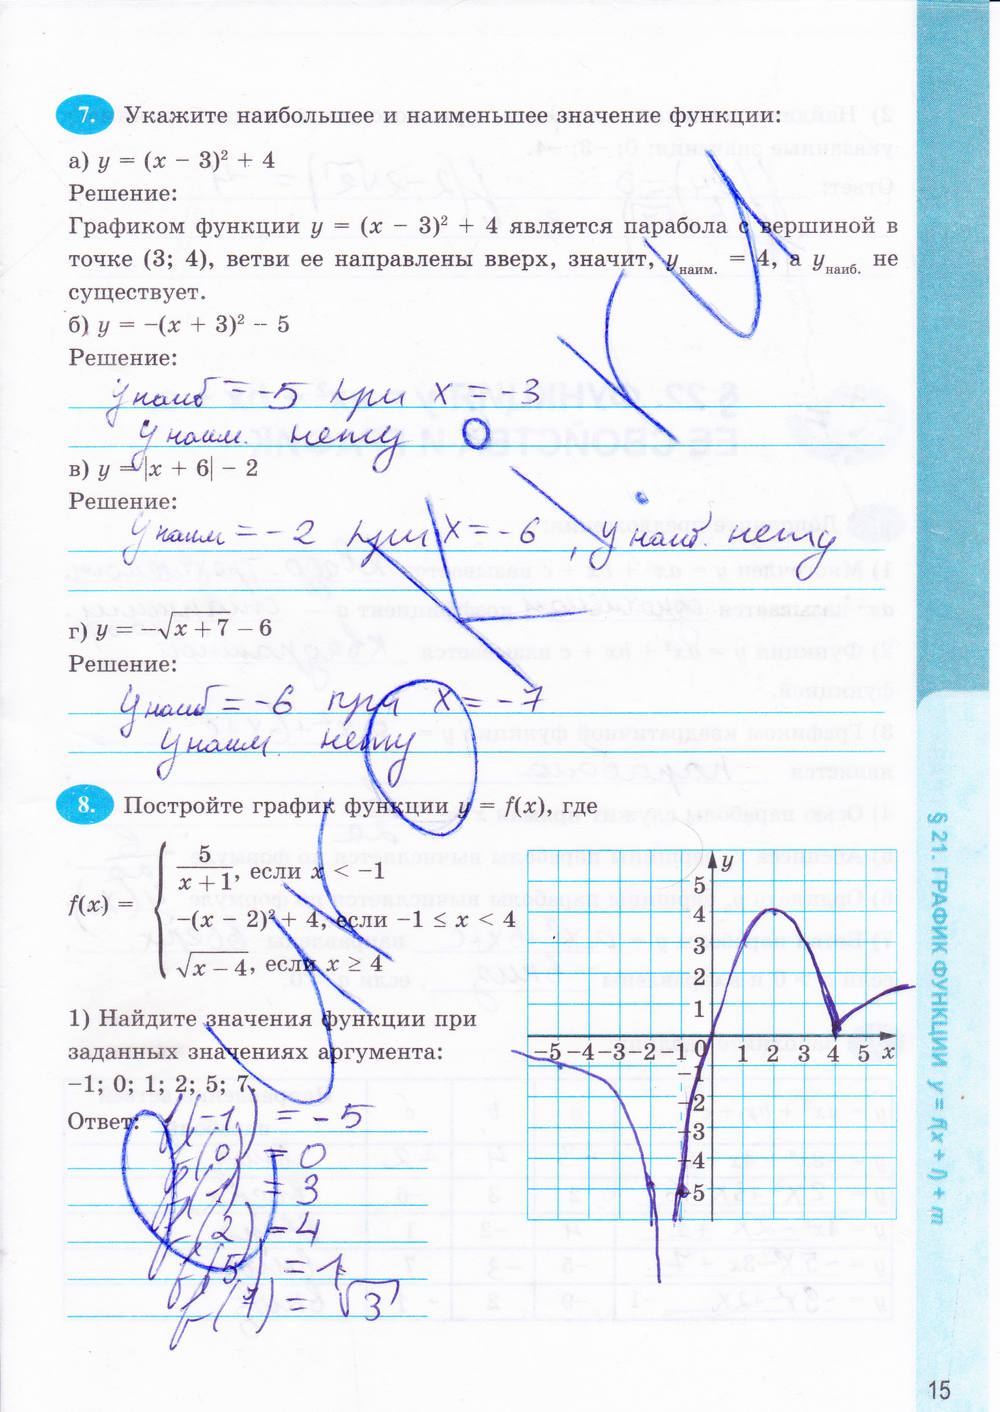 7. Укажите наибольшее и наименьшее значение функции:
а) y = (x − 3)² + 4
Решение:
Графиком функции y = (x − 3)² + 4 является парабола с вершиной в
точке (3; 4), ветви ее направлены вверх, значит, yнаим. = 4, а yнаиб. не
существует.
б) y = −(x + 3)² − 5
Решение:
y наиб = −5 при x = −3
y наим. нету
в) y = |x + 6| − 2
Решение:
y наим = −2 при x = −6, y наиб. нету
г) y = −√x + 7 − 6
Решение:
y наиб = −6 при x = −7
y наим. нету
8. Постройте график функции y = f(x), где
f(x) =
5/(x + 1), если x < −1
−(x − 2)² + 4, если −1 ≤ x < 4
√x − 4, если x ≥ 4
1) Найдите значения функции при
заданных значениях аргумента:
−1; 0; 1; 2; 5; 7.
Ответ: f(−1) = −5
f(0) = 0
f(1) = 3
f(2) = 4
f(5) = 1
f(7) = √3
y
5
4
3
2
1
−5 −4 −3 −2 −1 0 1 2 3 4 5 x
−1
−2
−3
−4
−5
§ 21. ГРАФИК ФУНКЦИИ y = f(x + l) + m
15